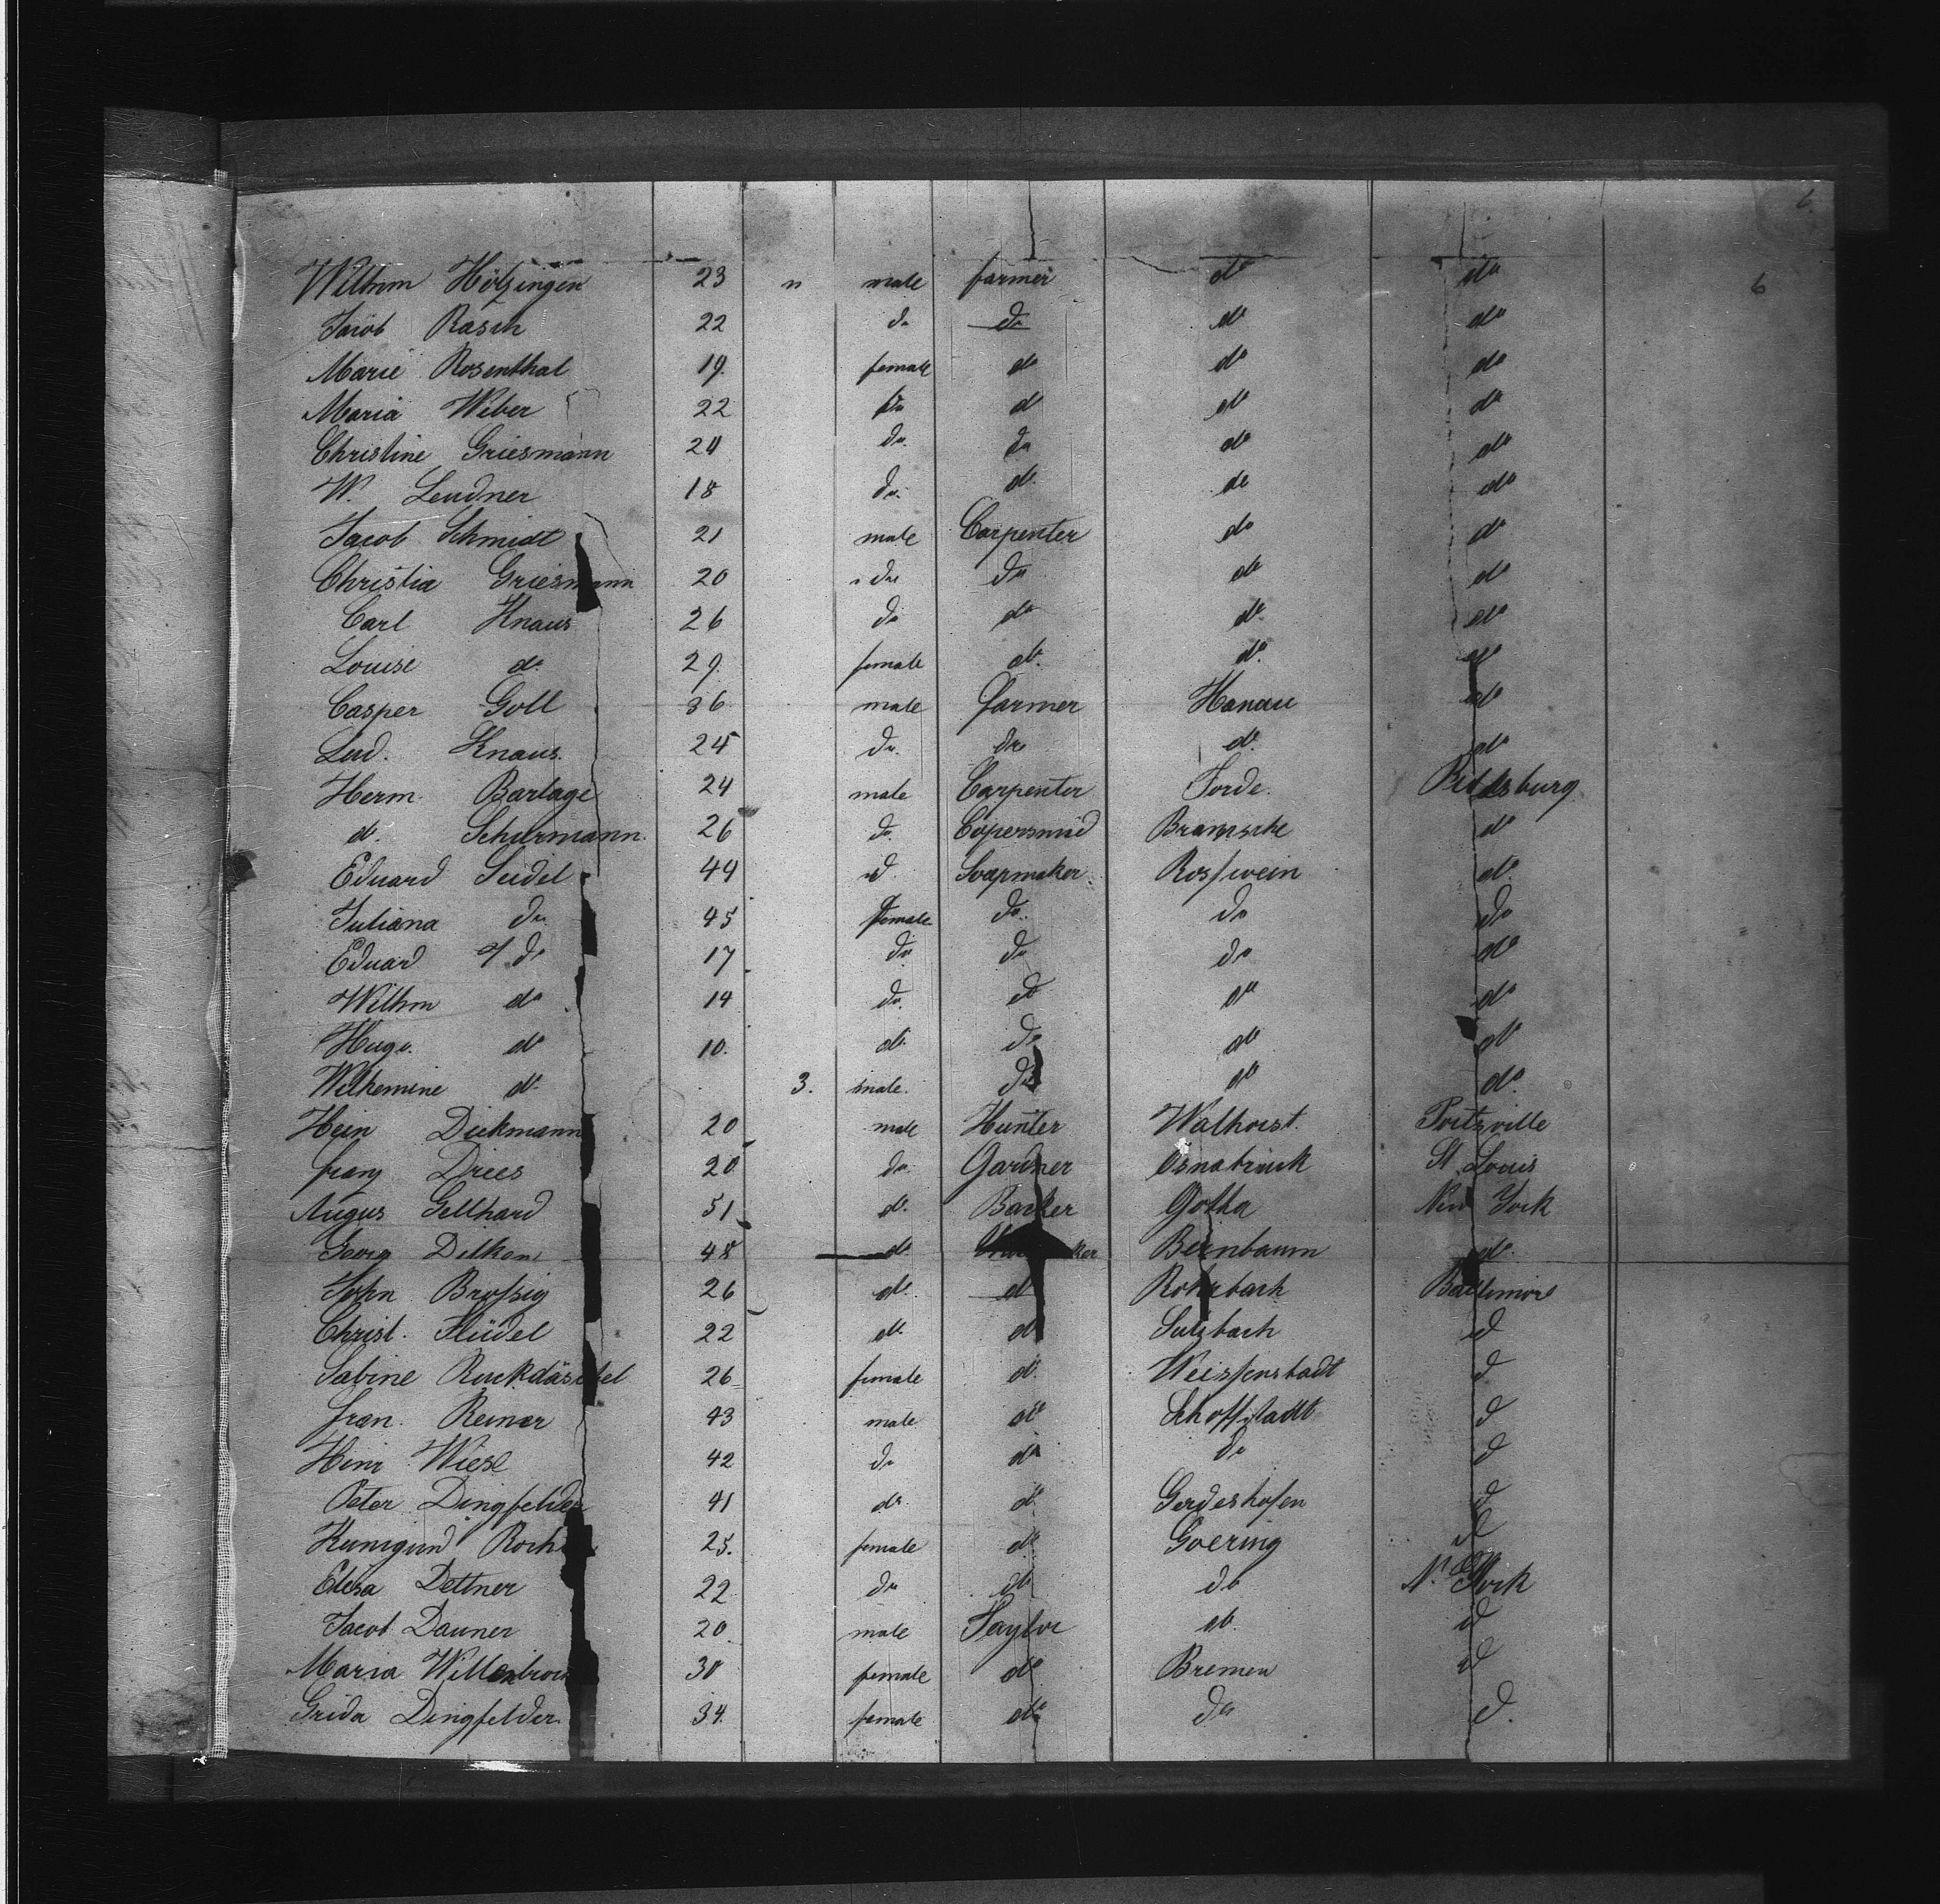 6
Wilhm Hölzingen 23 " male farmer do do 6
Jacob Rasch 22 do do do do
Marie Rosenthal 19. female do do do
Maria Weber 22 do do do do
Christine Griesmann 24 do. do do do
W. Lendner 18 do. do. do do
Jacob Schmidt 21 male Carpenter do do
Christia Griesmann 20 do do do do
Carl Knaus 26 do do do. do
Louise do. 29. female do. do. do
Casper Goll 36 male farmer Hanau do
Lud. Knaus. 25 do. do do. do
Herm. Barlage 24 male Carpenter Forde. Pittsburg
do. Schurmann. 26 do. Copersmid Bramsche do
Eduard Seidel 44 d. Soapmaker. Rosswein do.
Juliana do 45 female do. do do
Eduard do 17 do do do do
Wilhm do 14 do. do do do
Hugo. do 10. do. do do do
Wilhemine do. 3. male. do do do.
Hein Diekmann 20 male Hunter Walhorst. Portsville
franz Drees 20 do. Gardner Osnabrück St. Louis
Augus Gellhard 51 do. Barker Gotha New York
Georg Delken 48 do. ker Beinbaum do.
John Brossig 26 do. do Rohrbach Baltimore
Christ. Flüdel 22 do. do Sulzbach d
Sabine Ruckdäschel 26 female do. Weissenstadt d
fran. Reiner 43 male do Schoffstadt d
Heinr Wiese 42 do do do d
Peter Dingfelder 41 do. do Gerdeshofen d
Kunigund Roch 25. female do. Goering d
Elisa Dettner 22 do do do N. York
Jacob Dauner 20. male Taylor do. d
Maria Willenbrock 30 female do Bremen d
Grida Dingfelder. 34. female do. do d.